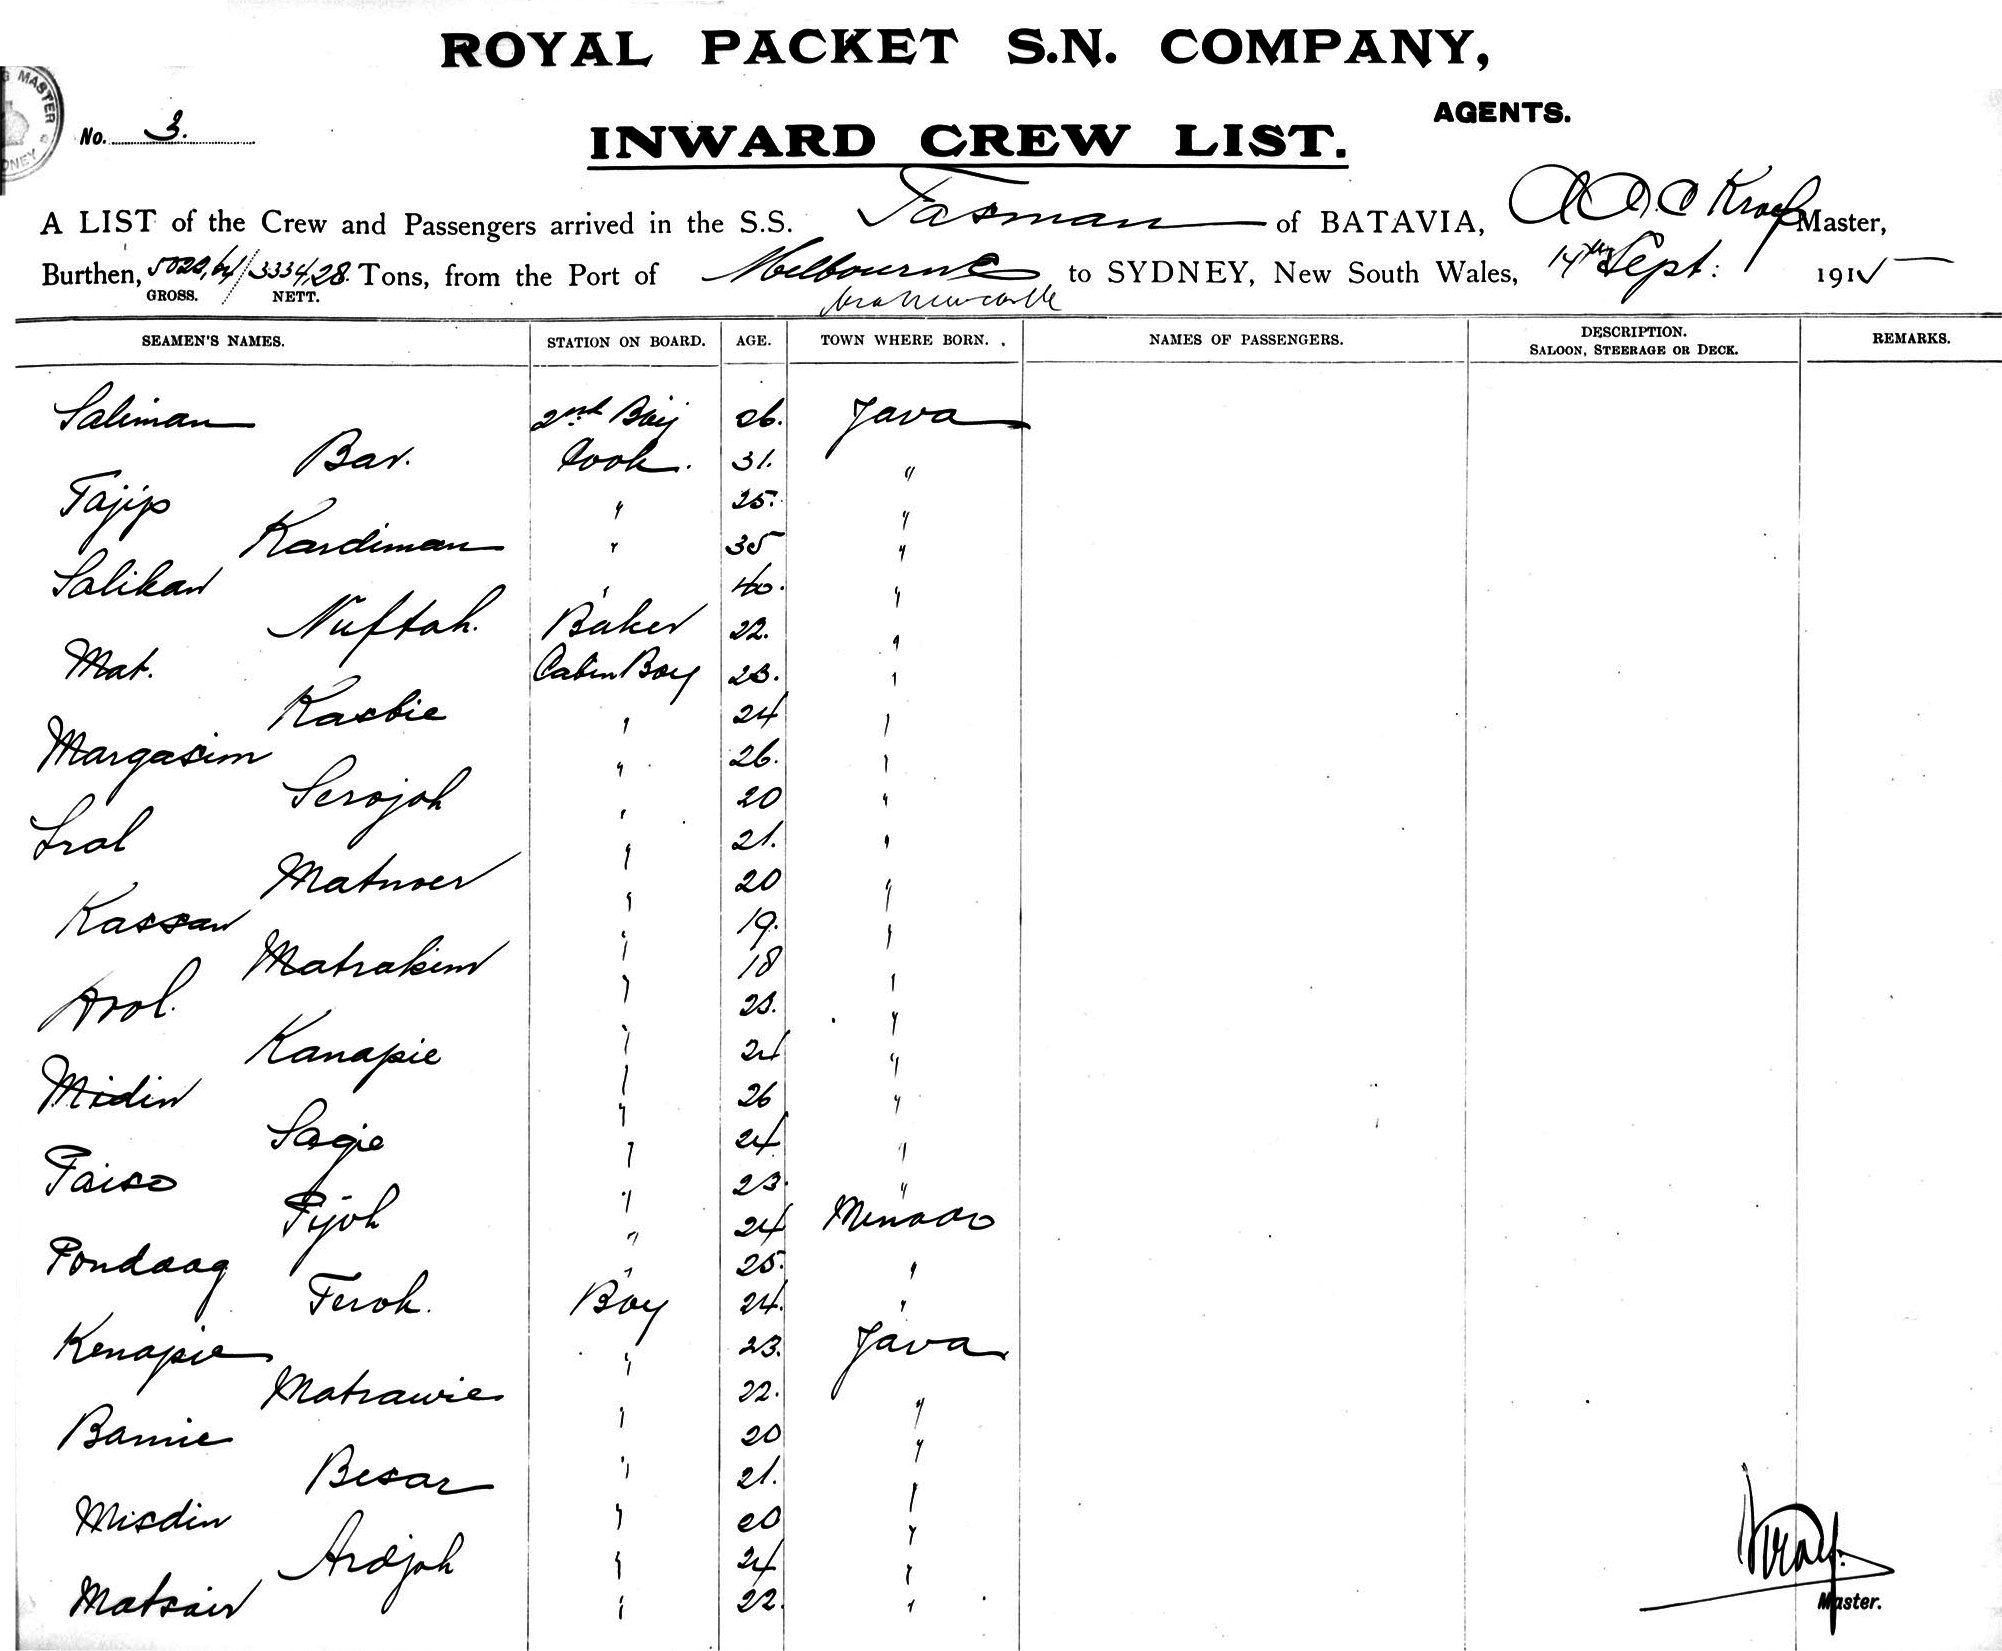 ROYAL PACKET S.N. COMPANY,
AGENTS.
No. 3.
INWARD CREW LIST.
A LIST of the Crew and Passengers arrived in the S.S. Tasman of BATAVIA, Master,
Burthen, 5022,64 / 3334,28 Tons, from the Port of Melbourne to SYDNEY, New South Wales, 14th Sept: 1915
GROSS. NETT. via Newcastle
SEAMEN'S NAMES. STATION ON BOARD. AGE. TOWN WHERE BORN. NAMES OF PASSENGERS. DESCRIPTION. SALOON, STEERAGE OR DECK. REMARKS.
Saliman 2nd Boy 26. Java
Bar. Cook. 31. "
Tajip " 25. "
Kardiman " 35 "
Salikan " 40. "
Nuftah. Baker 22. "
Mat. Cabin Boy 23. "
Kasbie " 24 "
Margasim " 26. "
Serojoh " 20 "
Sral " 21. "
Matnoer " 20 "
Kassan " 19. "
Matrakim " 18 "
Arol. " 23. "
Kanapie " 24 "
Midin " 26 "
Sagie " 24 "
Paiso " 23. "
Pijoh " 24 Menado
Pondaag " 25. "
Feroh. Boy 24. "
Kenapie " 23. Java
Matrawie " 22. "
Bamie " 20 "
Besar " 21. "
Misdin " 20 "
Ardjoh " 24 "
Matsair " 22. "
Master.
MASTER